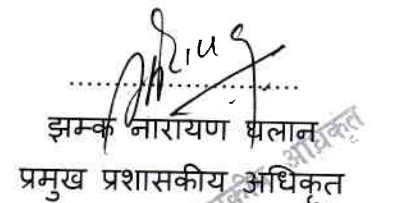 झम्क नारायण घलान
प्रमुख प्रशासकीय अधिकृत